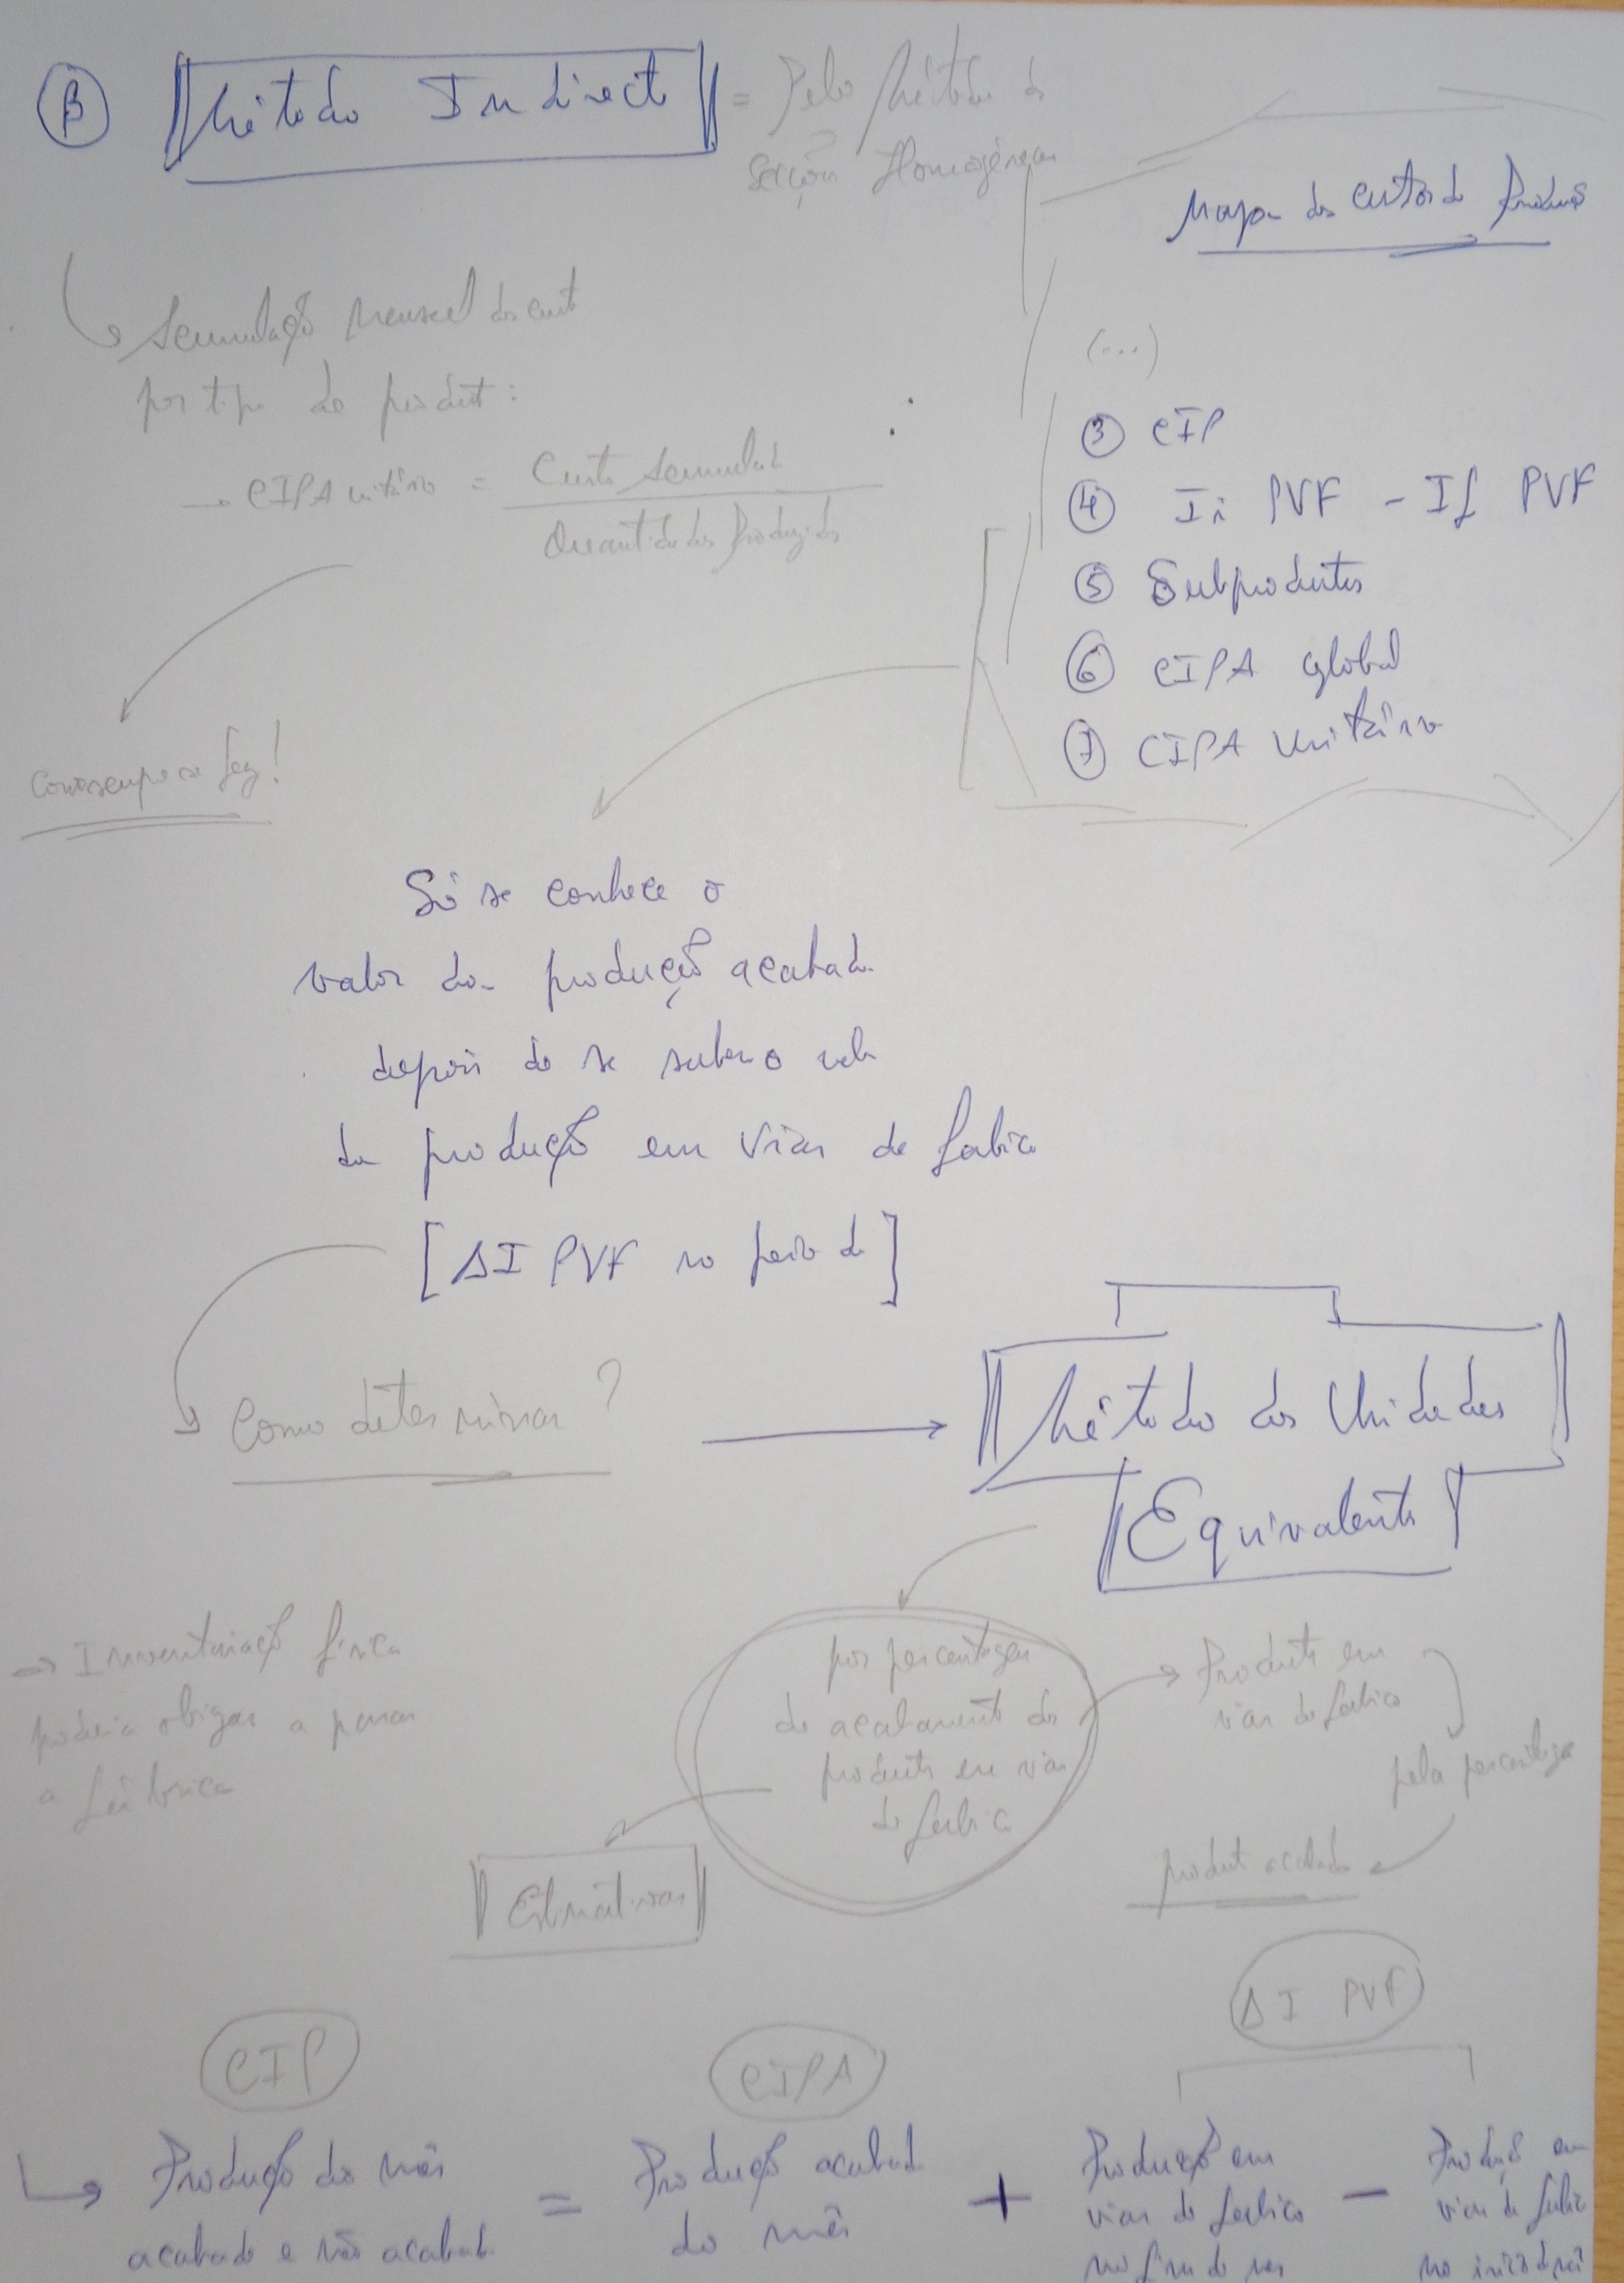 B Método Indirecto = Pelo Método de
Secções Homogéneas
Mapa dos custos de Produção
Acumulação mensal dos custos
por tipo de produto:
→ CIPA unitário = Custo Acumulado
Quantidades Produzidas
como sempre se fez!
(...)
3 CIP
4 Ii PVF - If PVF
5 Subprodutos
6 CIPA global
7 CIPA Unitário
Só se conhece o
valor da produção acabada
depois de se saber o valor
da produção em vias de fabrico
[ΔI PVF no período]
Como determinar?
Método das Unidades
Equivalentes
→ Inventariação física
poderia obrigar a parar
a fábrica
por percentagem
de acabamento dos
produtos em vias
de fabrico
Estimativas
Produtos em
vias de fabrico
pela percentagem
produto acabado
ΔI PVF
CIP
CIPA
Produção do mês
acabada e não acabada
=
Produção acabada
do mês
+
Produção em
vias de fabrico
no fim do mês
-
Produção em
vias de fabrico
no início do mês